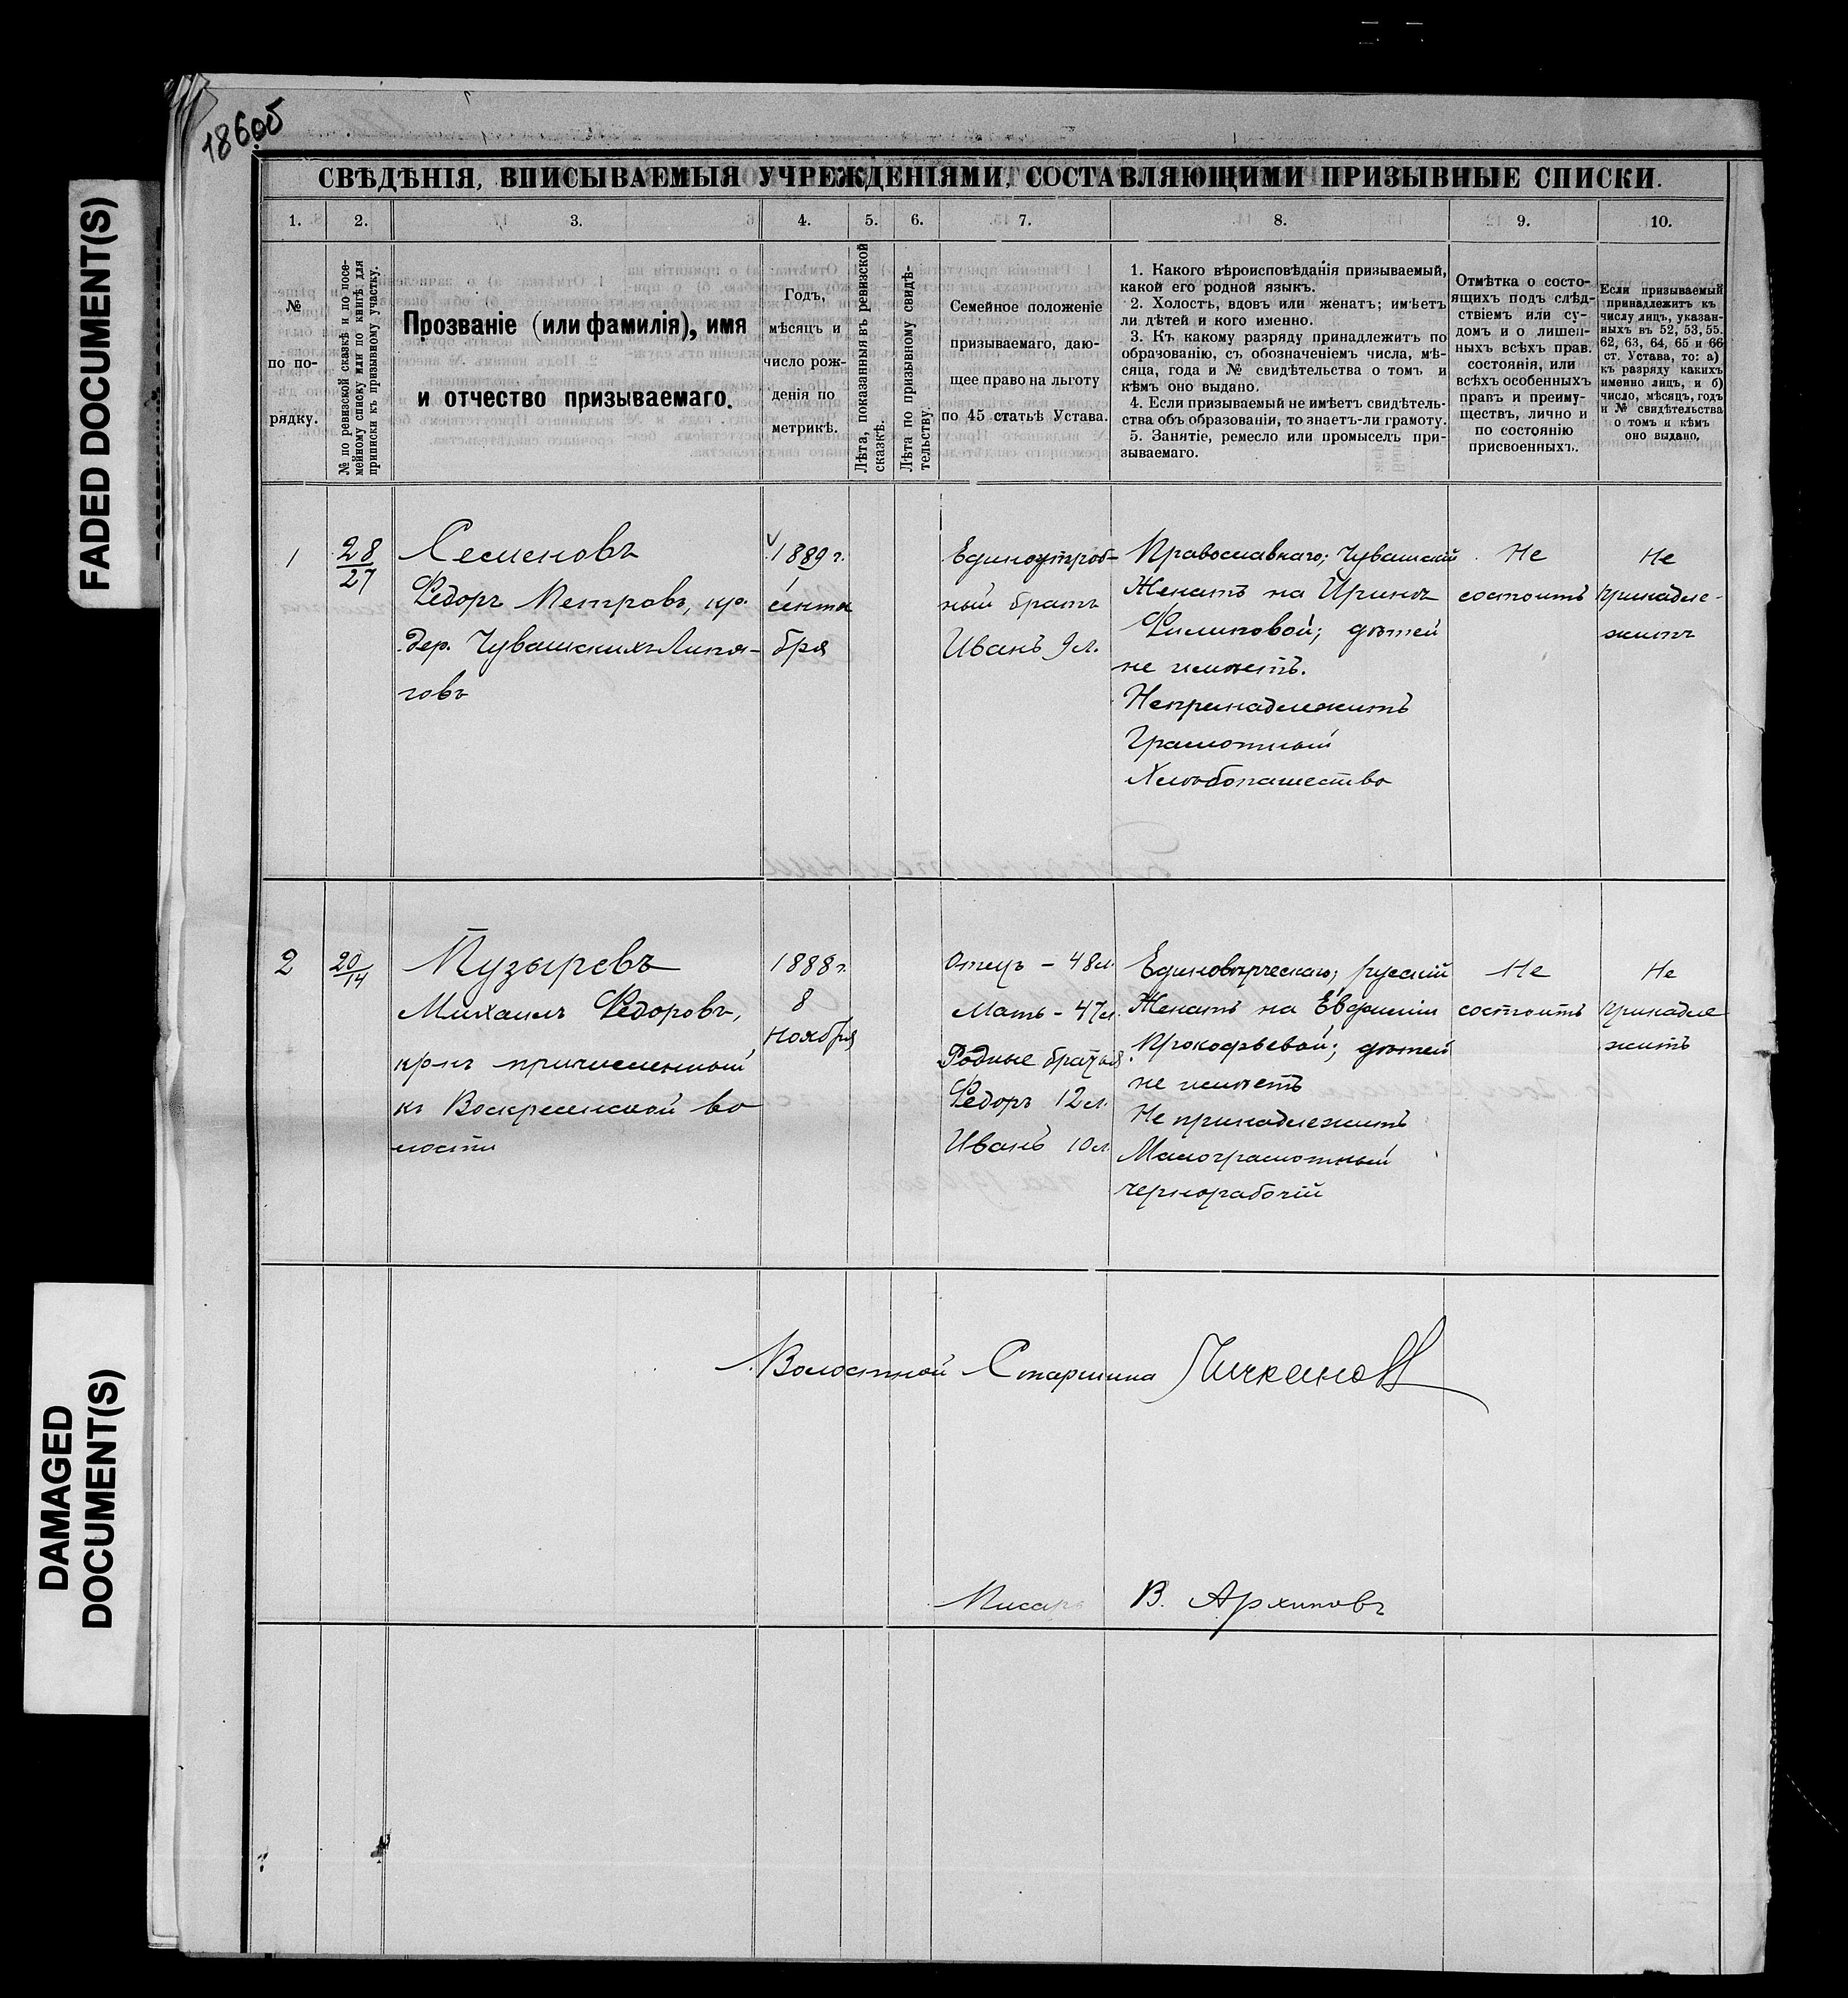 186об
FADED DOCUMENT(S)
DAMAGED
DOCUMENT(S)
СВѢДѢНІЯ, ВПИСЫВАЕМЫЯ УЧРЕЖДЕНІЯМИ, СОСТАВЛЯЮЩИМИ ПРИЗЫВНЫЕ СПИСКИ.
1. 2. 3. 4. 5. 6. 7. 8. 9. 10.
№
по по-
рядку.
№ по ревизской сказкѣ и по посе-
мейному списку или по книгѣ для
приписки къ призывному участку.
Прозваніе (или фамилія), имя
и отчество призываемаго.
Годъ,
мѣсяцъ и
число рож-
денія по
метрикѣ.
Лѣта, показанныя въ ревизской
сказкѣ.
Лѣта по призывному свидѣ-
тельству.
Семейное положеніе
призываемаго, даю-
щее право на льготу
по 45 статьѣ Устава.
1. Какого вѣроисповѣданія призываемый,
какой его родной языкъ.
2. Холостъ, вдовъ или женатъ; имѣетъ
ли дѣтей и кого именно.
3. Къ какому разряду принадлежитъ по
образованію, съ обозначеніемъ числа, мѣ-
сяца, года и № свидѣтельства о томъ и
кѣмъ оно выдано.
4. Если призываемый не имѣетъ свидѣтель-
ства объ образованіи, то знаетъ-ли грамоту.
5. Занятіе, ремесло или промыселъ при-
зываемаго.
Отмѣтка о состо-
ящихъ подъ слѣд-
ствіемъ или су-
домъ и о лишен-
ныхъ всѣхъ прав.
состоянія, или
всѣхъ особенныхъ
правъ и преиму-
ществъ, лично и
по состоянію
присвоенныхъ.
Если призываемый
принадлежитъ къ
числу лицъ, указан-
ныхъ въ 52, 53, 55.
62, 63, 64, 65 и 66
ст. Устава, то: а)
къ разряду какихъ
именно лицъ, и б)
число, мѣсяцъ, годъ
и № свидѣтельства
о томъ и кѣмъ
оно выдано.
1
28
27
Семеновъ
Ѳедоръ Петровъ, кр.
дер. Чувашскихъ Липя-
говъ
1889 г.
сентя
бря
Единоутроб-
ный братъ
Иванъ 9 л.
Православнаго; Чувашскій
Женатъ на Иринѣ
Филиповой; дѣтей
не имѣетъ.
Непринадлежитъ
Грамотный
Хлѣбопашество
Не
состоитъ
Не
принадле-
житъ
2
20
14
Пузыревъ
Михаилъ Ѳедоровъ,
кр-нъ причисленный
къ Воскресенской во
лости
1888 г.
8
ноября
Отецъ - 48 л.
Мать - 47 л.
Родные братья
Ѳедоръ 12 л.
Иванъ 10 л.
Единовѣрческаго; русскій
Женатъ на Евфиміи
Прокофьевой; дѣтей
не имѣетъ
Не принадлежитъ
Малограмотный
чернорабочій
Не
состоитъ
Не
принадле
житъ
Волостной Старшина
Писарь В. Архиповъ